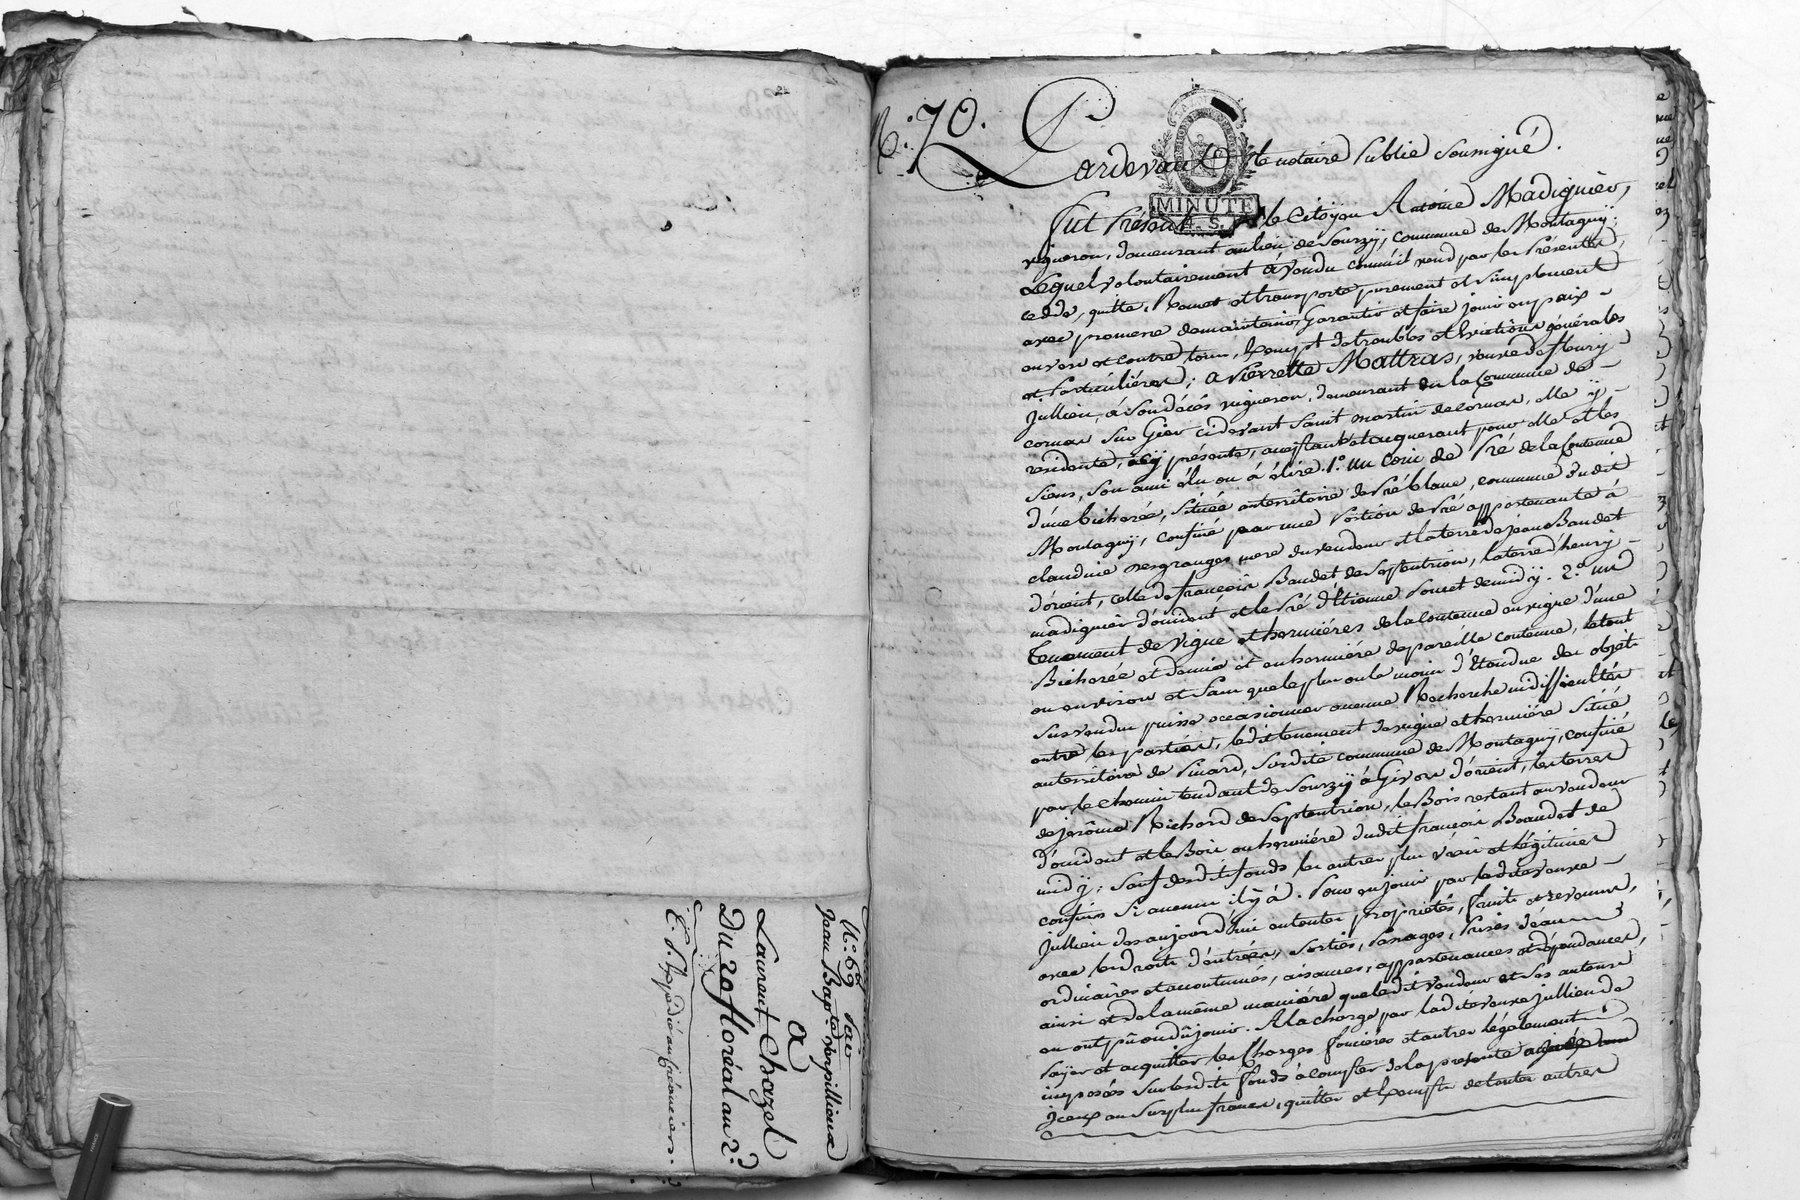 N.° 69. Par
Jean Bap.te
à
Laurent Chazel
Du 2 floréal an 2.d
E. d. Expédié au Créancier.
N.° 70.
Pardevant le notaire Public Soussigné.
MINUTE
Fut Présent le Citoyen Antoine Madignier,
vigneron, demeurant au lieu de Sourzÿ, commune de Montagnÿ;
Lequel volontairement à vendu comm'il vend par les Présentes,
cedde, quitte, Remet et transporte purement et simplement
avec promesse de maintenir, Garantir et faire jouir en paix
envers et contre tous, Exempt de troubles et Evictions générales
et Particulières; à Pierrette Mattras, veuve de fleury
Jullien, à son décés vigneron, demeurant en la Commune de
cornas sur Gier cidevant Saint martin de cornas, elle ÿ
residente, icÿ présente, acceptante et acquerant pour elle et les
Siens, Son ami élu ou à élire. 1.° un coin de Pré de la Contenue
d'une bicherée, Située au territoire de Pré blanc, commune dudit
Montagnÿ, confiné par une Portion de Pré appartenante à
claudine desgranges mere du vendeur et la terre de jean Baudet
d'orient, celle de françois Baudet de Septentrion, la terre d'henry
madignier d'occident et le Pré d'Etienne Poncet de midÿ. 2.° un
tenement de vigne et hermiéres de la contenue en vigne d'une
Bicherée et demie et en hermiére de pareille contenue, le tout
ou environ et Sans que le plus ou le moins d'étendue des objets
Sus vendus puisse occasionner aucune Recherche ni difficultés
entre les parties, ledit tenement de vigne et hermiére Situé
au territoire de Pinard, Susdite commune de Montagnÿ, confiné
par le chemin tendant de Sourzÿ à Givors d'orient, les terres
de jerôme Richard de Septentrion, le Bois restant au vendeur
d'occident et le Bois ou hermiére dudit françois Baudet de
midÿ; Sauf desdits fonds les autres plus vrais et légitimes
confins Si aucuns il ÿ à. Pour en jouir par ladite veuve
Jullien des aujourd'hui en toutes propriétés, fruits et revenus,
avec les droits d'entrées, Sorties, Passages, Prises d'eaux
ordinaires et accoutumés, aisances, appartenances et dépendances,
ainsi et de la même maniére que ledit vendeur et Ses auteurs
en ont pû ou dû jouir. A la charge par ladite veuve jullien de
Payer et acquitter les Charges foncières et autres légalement
imposées Sur lesdits fonds à compter de la presente
Iceux au Surplus francs, quittes et Exempts de toutes autres